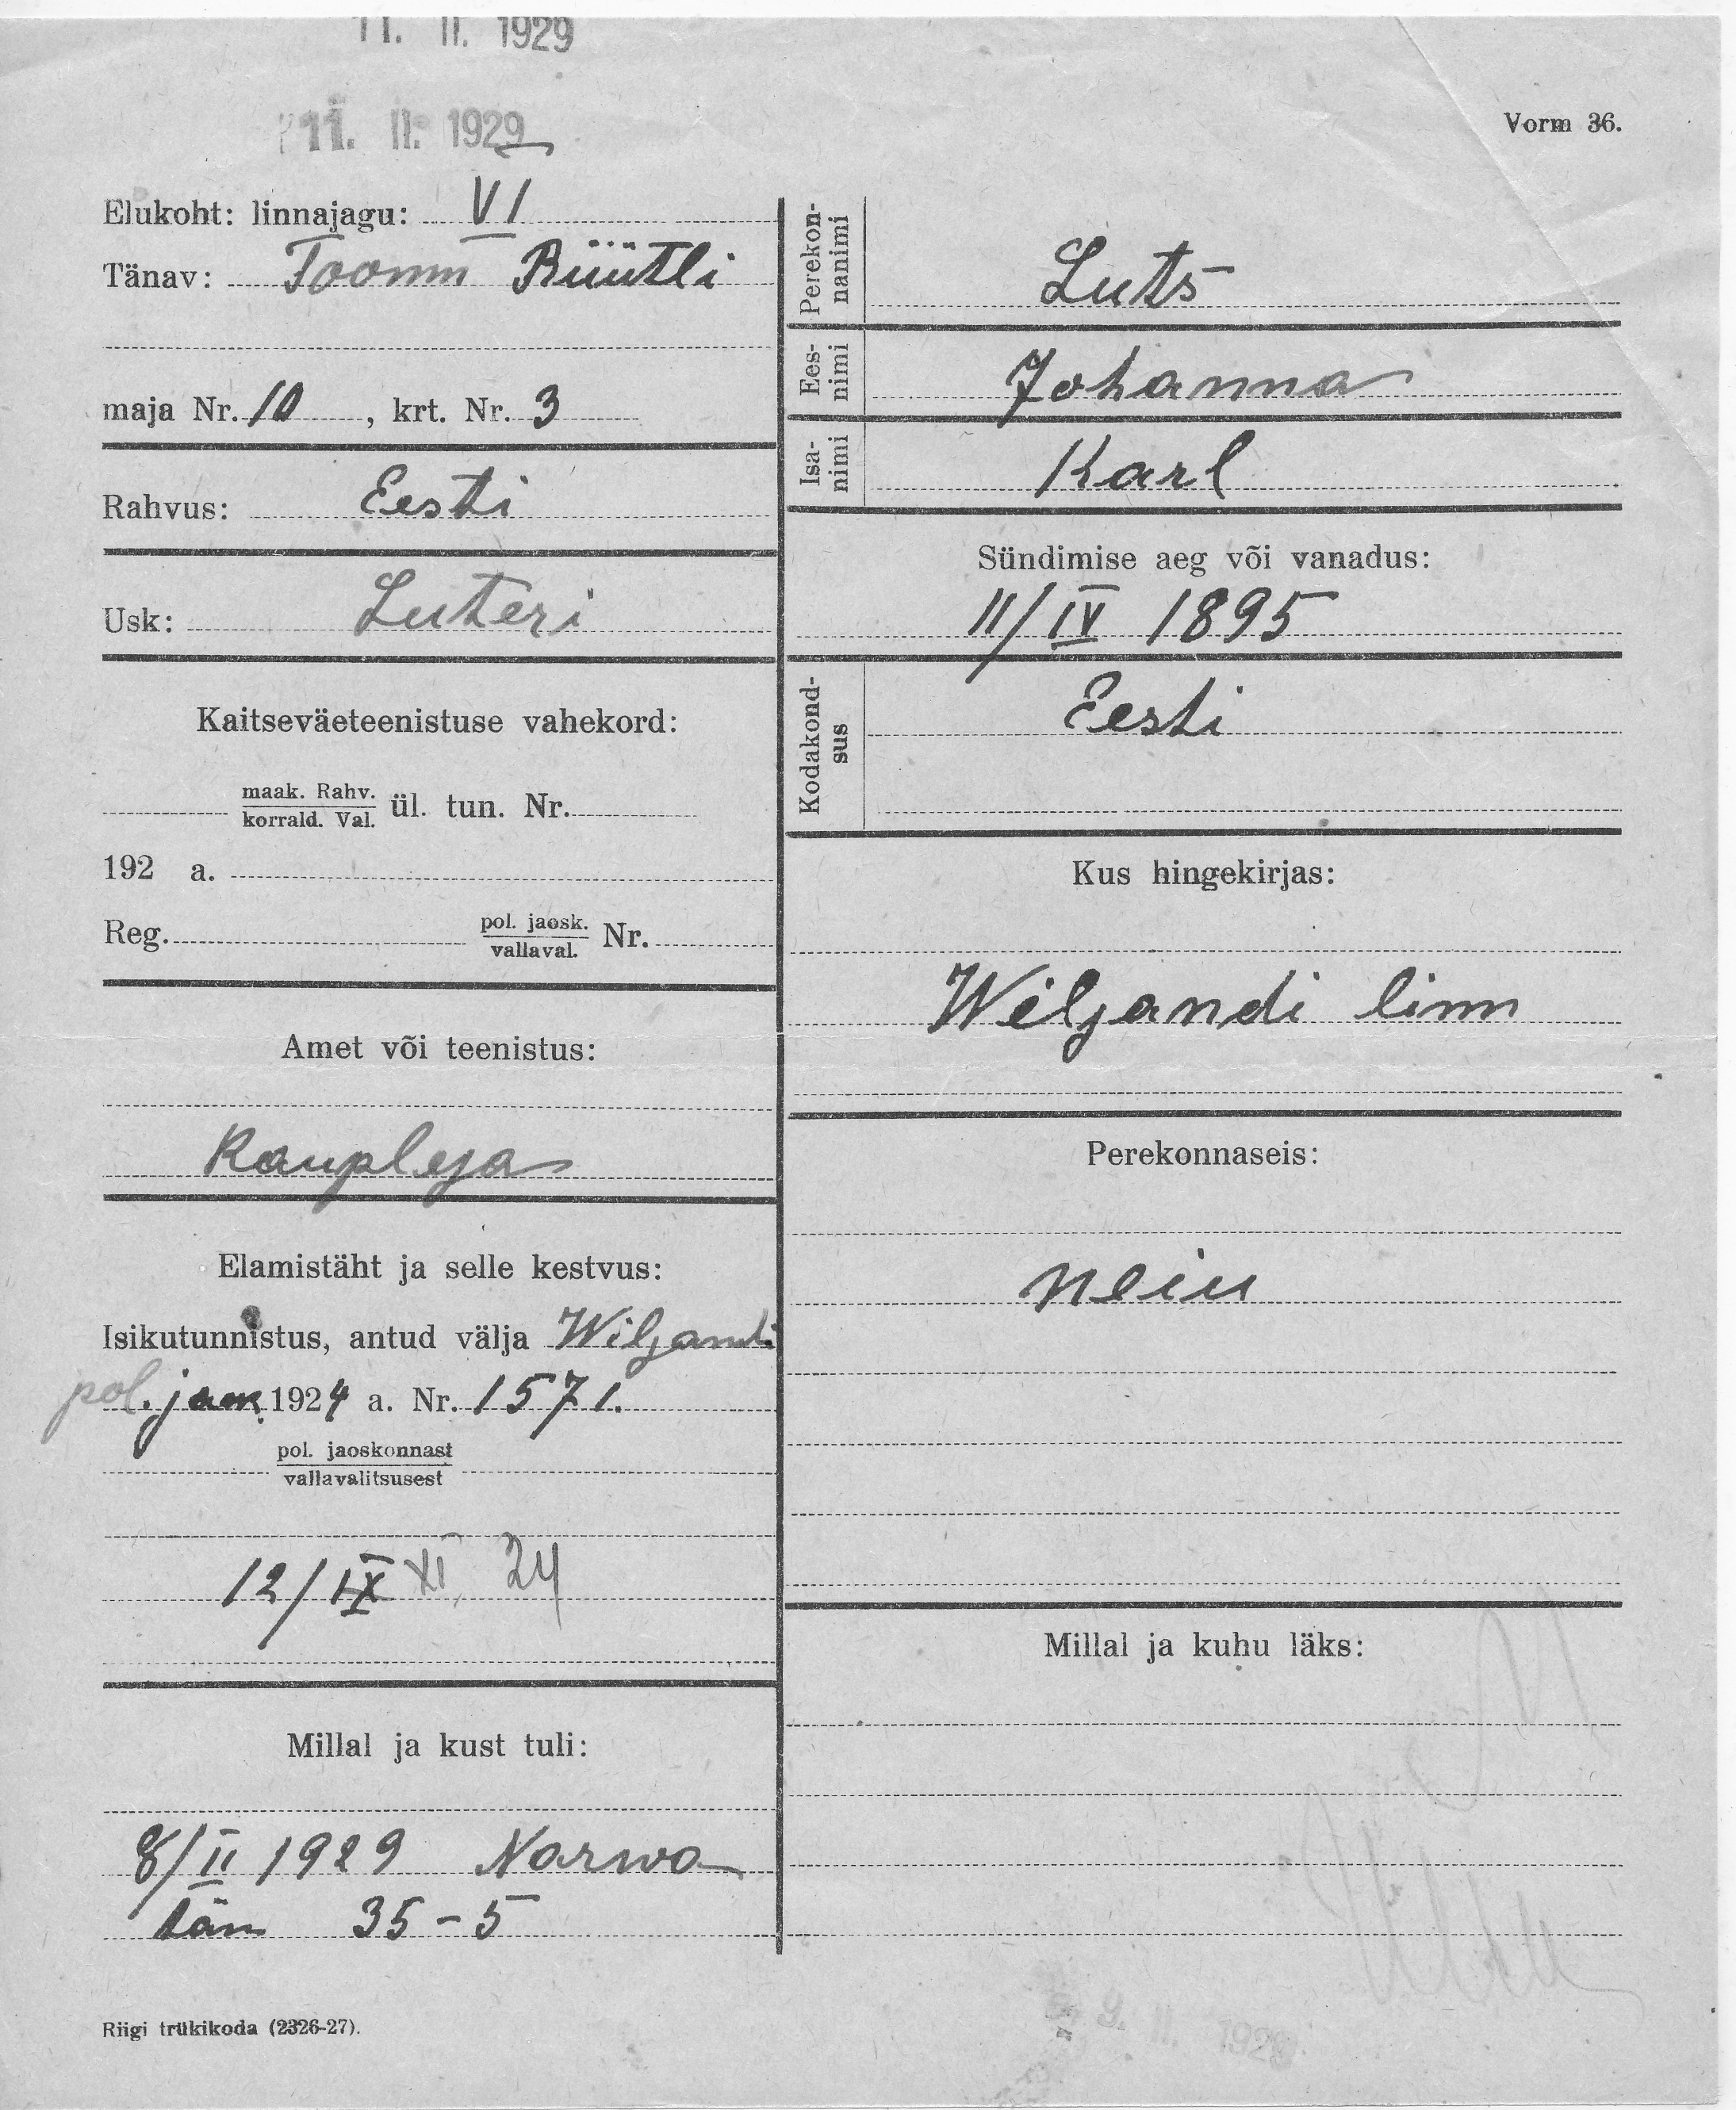 11. II. 1929
11. II. 1929
Vorm 36.
Elukoht: linnajagu: VI
Tänav: Toom Rüütli
maja Nr. 10, krt. Nr. 3
Rahvus: Eesti
Usk: Luteri
Kaitseväeteenistuse vahekord:
maak. Rahv.
korrald. Val.
ül. tun. Nr.
192 a.
Reg. pol. jaosk.
vallaval.
Nr.
Amet või teenistus:
Kaupleja
Elamistäht ja selle kestvus:
Isikutunnistus, antud välja Wiljandi
pol. jaos. 1924 a. Nr. 1571.
pol. jaoskonnast
vallavalitsusest
12/IX XI 24
Millal ja kust tuli:
8/II 1929 Narwa
tän 35-5
Riigi trükikoda (2326-27).
Perekon-
nanimi
Luts
Ees-
nimi
Johanna
Isa-
nimi
Karl
Sündimise aeg või vanadus:
11/IV 1895
Kodakond-
sus
Eesti
Kus hingekirjas:
Wiljandi linn
Perekonnaseis:
neiu
Millal ja kuhu läks:
9. II. 1929